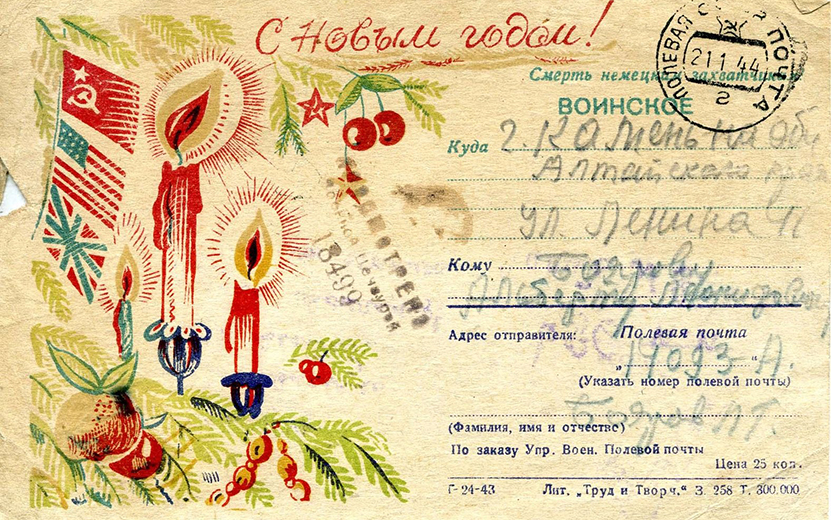 С Новым годом!
ПОЛЕВАЯ ПОЧТА
21 1 44
г
Смерть немецким захватчикам
ВОИНСКОЕ
Куда г. Камень на Оби
Алтайского края
ул. Ленина 41
ПРОСМОТРЕНО
Военной Цензурой
18499
Кому
Альберту
Адрес отправителя: Полевая почта
„ 19093-А. “
(Указать номер полевой почты)
(Фамилия, имя и отчество)
По заказу Упр. Воен. Полевой почты
Цена 25 коп.
Г-24-43 Лит. „Труд и Творч.“ З. 258 Т. 300.000